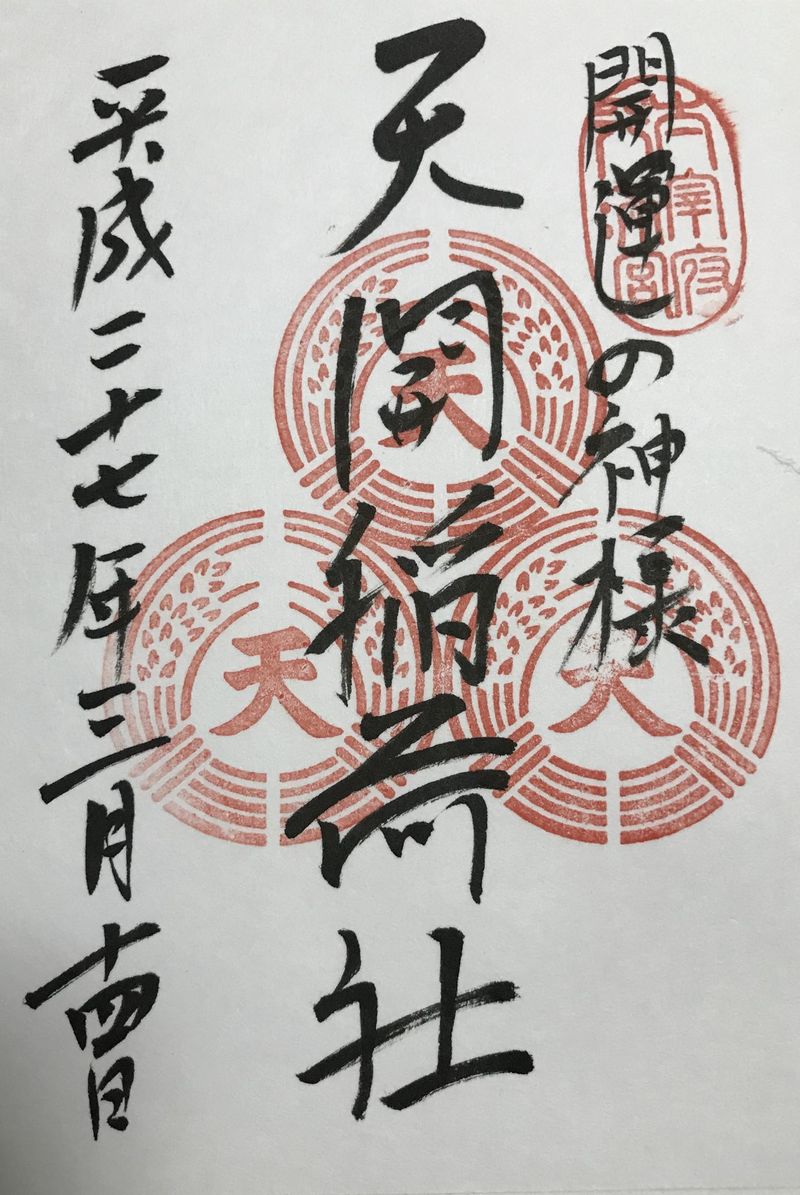 開運しの神様
太宰府
天満宮
天開稲荷社
天
天
天
平成二十七年三月十四日